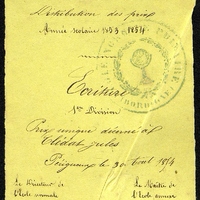 Distribution des prix
Année scolaire 1853 1854
Ecriture
1re Division
Prix unique décerné à
Clédat Jules
Périgueux le 30 Août 1854
Le Directeur de
l'Ecole normale
Le Maître de
l'Ecole annexe